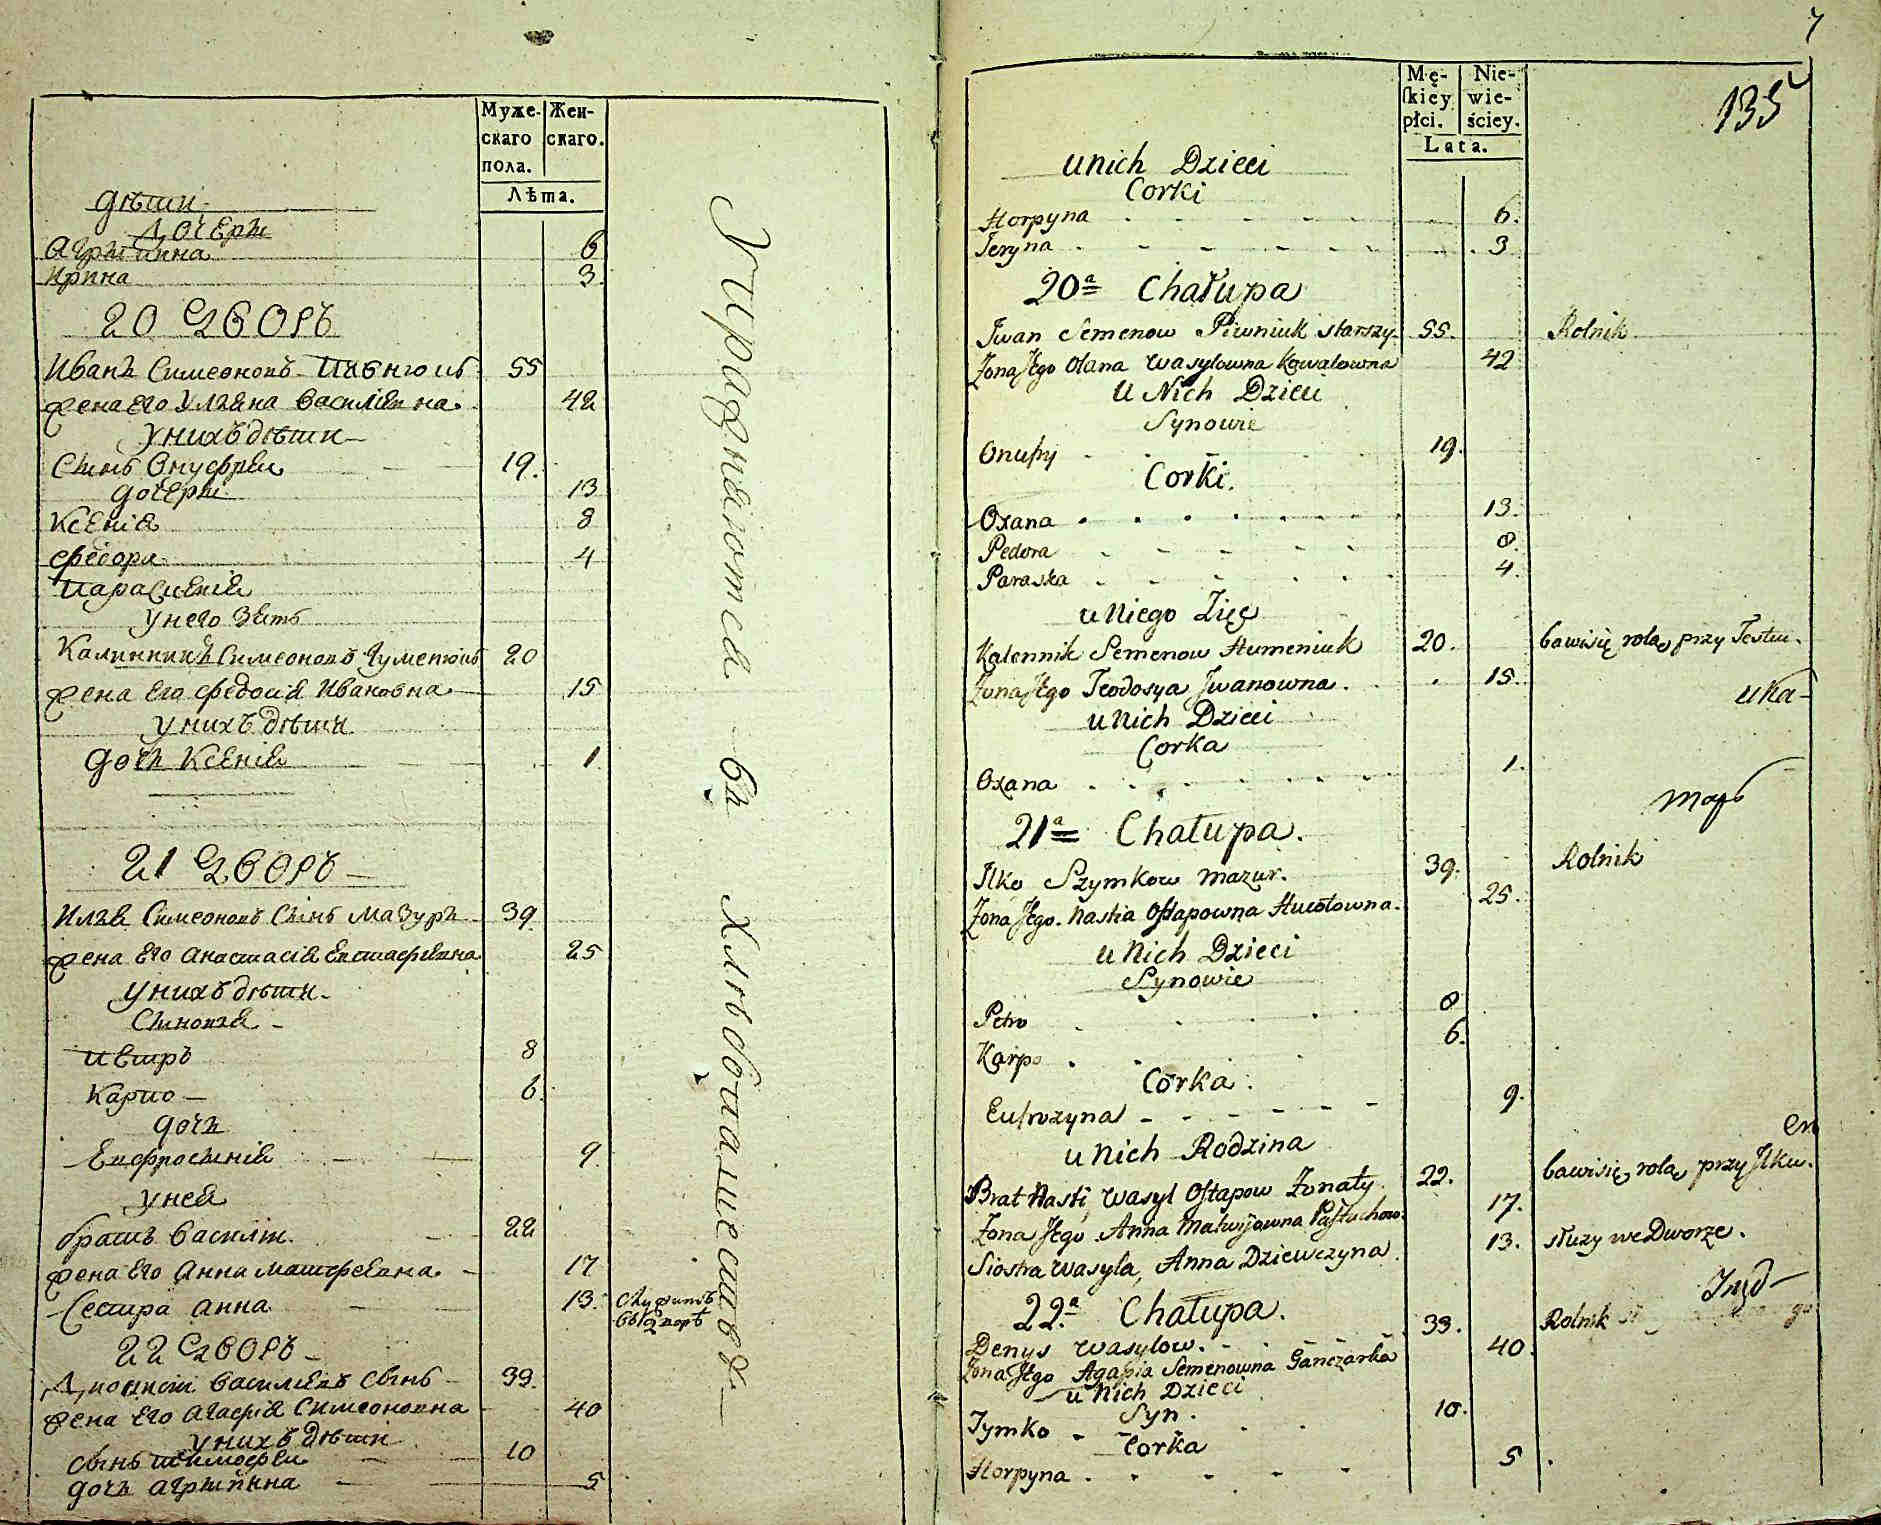 Муже-
скаго
пола.
Жен-
скаго.
Лѣта.
дѣти
дочери
Агрипина 6
Ирина 3
20 дворъ
Иванъ Симеоновъ Пивнюкъ 55
жена его Ульяна Василiевна 42
у нихъ дѣти
Сынъ Онуфрей 19.
дочери 13
Ксенiя 8
Феѡдора 4
Параскевiя
у него зять
Калинникъ Симеоновъ Гуменюкъ 20
жена его Феѡдосiя Ивановна 15
у нихъ дѣти
дочь Ксенiя 1
21 дворъ
Илья Симеоновъ Сынъ Мазуръ 39
жена его Анастасiя Евстафiевна 25
у нихъ дѣти
Сыновья
Петръ 8
Карпо 6.
дочь
Евфросинiя 9.
у нея
братъ Василiй 22
жена его Анна Матѳеевна 17
Сестра Анна 13. служитъ
въ дворѣ
22 дворъ
Дионисiй Василiевъ Сынъ 39.
жена его Агафiя Симеоновна 40
у нихъ дѣти
сынъ Тимофей 10
дочь Агрипина 5
Упражняются въ хлѣбопашествѣ
7
135
Mę-
skiey
płci.
Nie-
wie-
ściey.
Lata.
u nich Dzieci
Corki
Horpyna 6.
Jeryna 3
20ᵃ Chałupa
Jwan Semenow Piwniuk starszy 55. Rolnik
Żona Jego Olana Wasylowna Kowalowna 42
U Nich Dzieci
Synowie
Onufry 19.
Corki.
Oxana 13.
Pedora 8.
Paraska 4.
u Niego Zięć
Kalennik Semenow Humeniuk 20. bawi się rolą przy Testiu.
Żona Jego Teodosya Jwanowna. 15.
ука-
u Nich Dzieci
Corka
Oxana 1.
21ᵃ Chałupa.
Jlko Szymkow Mazur. 39. Rolnik
Żona Jego. Nastia Ostapowna Hucołowna. 25.
u Nich Dzieci
Synowie
Petro 8
Karpo 6.
Corka.
Eufrozyna 9.
u nich Rodzina
Brat Nasti, Wasyl Ostapow Żonaty 22. bawi się rolą przy Jlku.
Żona Jego Anna Matwijowna Pastuchow. 17.
Siostra Wasyla, Anna Dziewczyna 13. służy we Dworze.
22.ᵃ Chałupa.
Denys Wasylow. 39. Rolnik
Żona Jego Agapia Semenowna Ganczarka 40.
u Nich Dzieci
Syn.
Tymko 10.
Corka
Horpyna 5